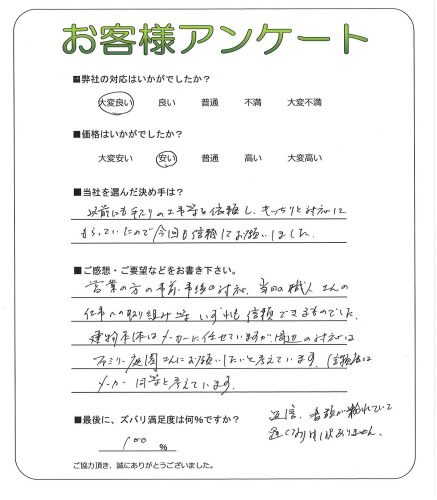 お客様アンケート
■弊社の対応はいかがでしたか?
大変良い 良い 普通 不満 大変不満
■価格はいかがでしたか?
大変安い 安い 普通 高い 大変高い
■当社を選んだ決め手は?
以前にも手スリの工事等を依頼し、きっちりと対応して
もらっていたので今回も信頼してお願いしました
■ご感想・ご要望などをお書き下さい。
営業の方の事前、事後の対応、当日の職人さんの
仕事への取り組み等いずれも信頼できるものでした。
建物本体はメーカーに任せていますが周辺の対応は
ファミリー庭園さんにお願いしたいと考えています。
メーカー同等と考えています。
■最後に、ズバリ満足度は何%ですか?
100 %
返信、書類が紛れていて
遅くなり申し訳ありません。
ご協力頂き、誠にありがとうございました。